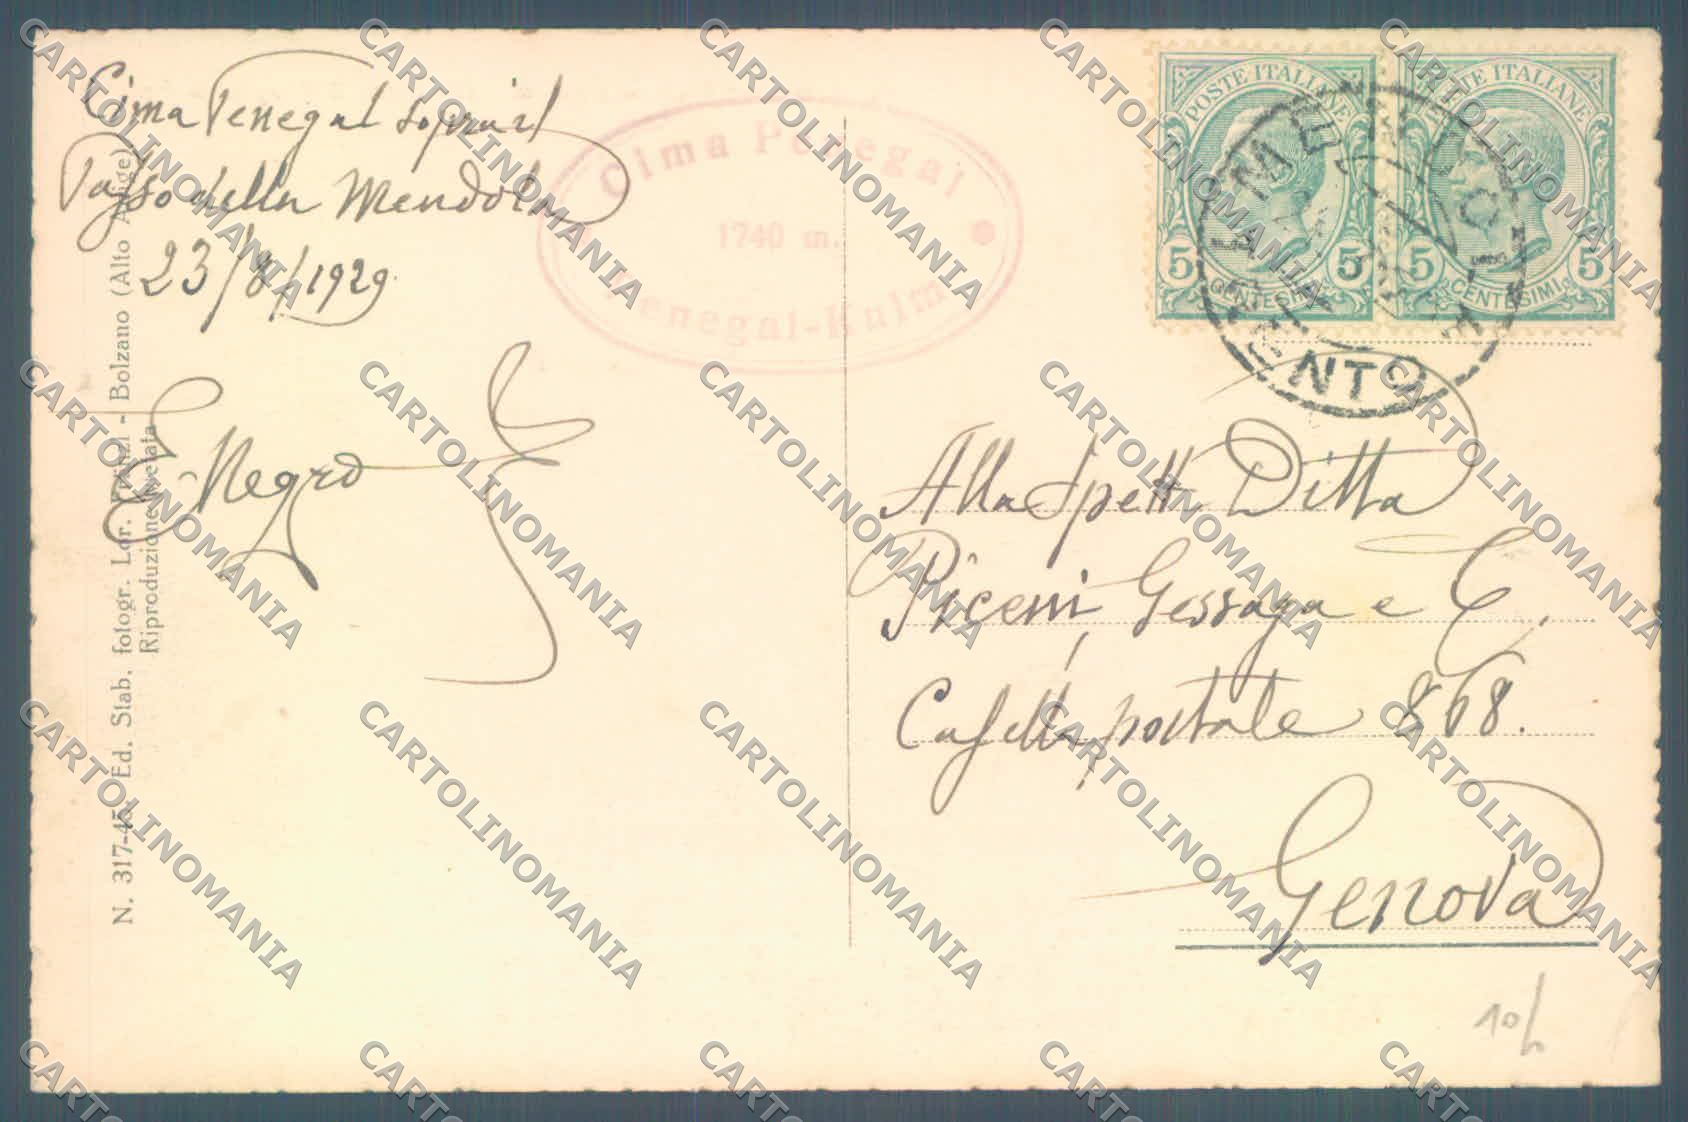 Cima Penegal sopra il
Passo della Mendola
23/8/1929
Negro
Cima Penegal
1740 m.
Penegal-Kulm
POSTE ITALIANE
5 5
CENTESIMI
POSTE ITALIANE
5 5
CENTESIMI
MENDOLA
TRENTO
Alla Spett. Ditta
Piceni Gessaga e C.
Casella postale 868.
Genova
10/
N. 317-45. Ed. Stab. fotogr. Lor. Fränzl - Bolzano (Alto Adige)
Riproduzione vietata
CARTOLINOMANIA